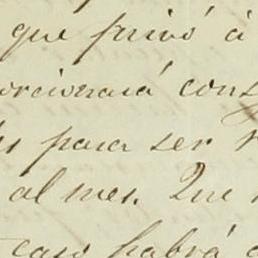 que privó á
orcionará cons
para ser
al mes. Que
caso habrá